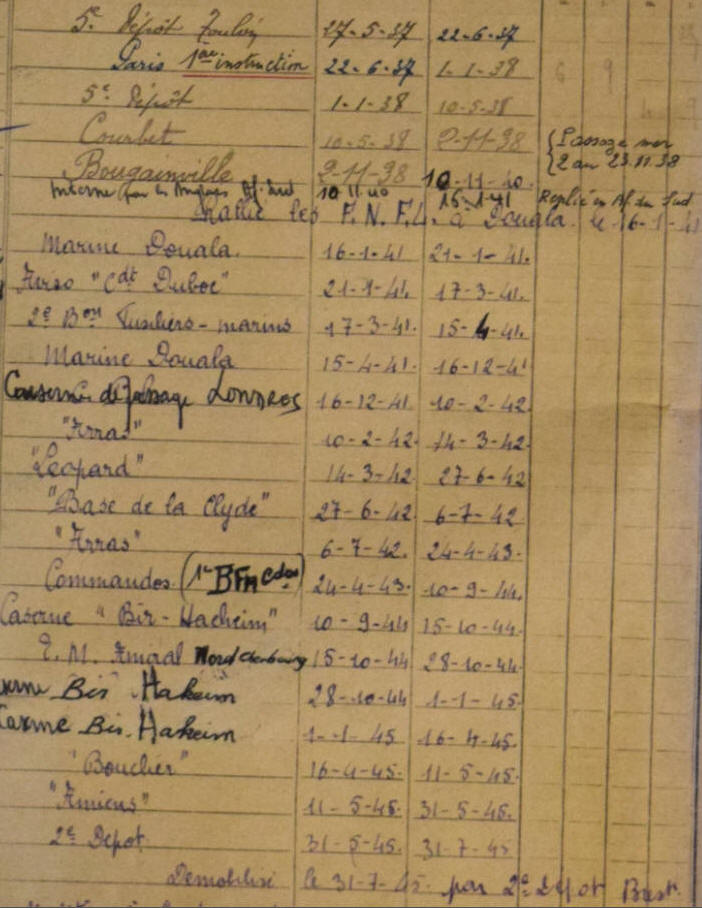 5e Dépôt Toulon 27-5-37 22-6-37
Paris 1ère instruction 22-6-37 1-1-38
5e Dépôt 1-1-38 10-5-38
Courbet 10-5-38 2-11-38 Passage
Bougainville 2-11-38 10-11-40 2 au 23.11.38
Interné par les Anglais Af. Sud 10 11 40 15-1-41 Replié en Af. du Sud
Rallie les F.N.F.L. à Douala. le 16-1-41
Marine Douala. 16-1-41 21-1-41.
Aviso "Cdt Duboc" 21-1-41. 17-3-41.
2e Bon Fusiliers-marins 17-3-41. 15-4-41.
Marine Douala 15-4-41. 16-12-41
Caserne de passage LONDRES 16-12-41 10-2-42.
"Arras" 10-2-42. 14-3-42.
"Léopard" 14-3-42 27-6-42
"Base de la Clyde" 27-6-42 6-7-42
"Arras" 6-7-42. 24-4-43.
Commandos. (1er BFM Cdos) 24-4-43. 10-9-44.
Caserne "Bir-Hacheim" 10-9-44 15-10-44.
E.M. Amiral Nord Cherbourg 15-10-44 28-10-44.
Bir Hakeim 28-10-44 1-1-45
Bir Hakeim 1-1-45 16-4-45.
"Boucher" 16-4-45. 11-5-45.
"Amiens" 11-5-45. 31-5-45.
2e Dépot. 31-5-45. 31-7-45
Démobilisé le 31-7-45. par 2e Dépot Brest.